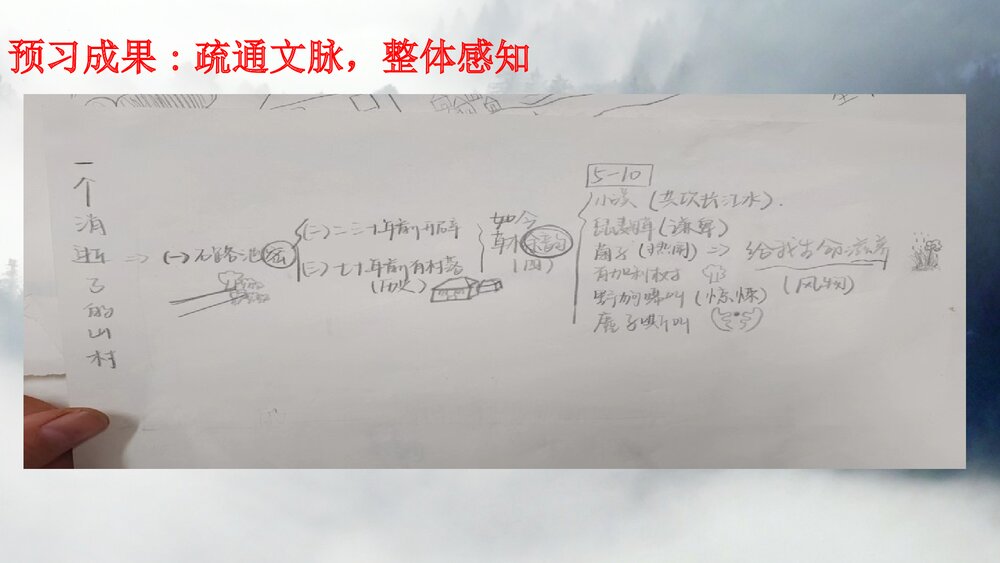 预习成果：疏通文脉，整体感知
一个消逝了的山村
⇒ (一) 石路
(二) 二三十年前
(三) 七十年前有村落
(历史)
如今
(四)
5-10
小溪 (共饮长江水)
鼠麴草 (谦卑)
菌子 (热闹) ⇒ 给我生命滋养
有加利树
(风物)
野狗嗥叫 (惊悚)
麂子嘶叫